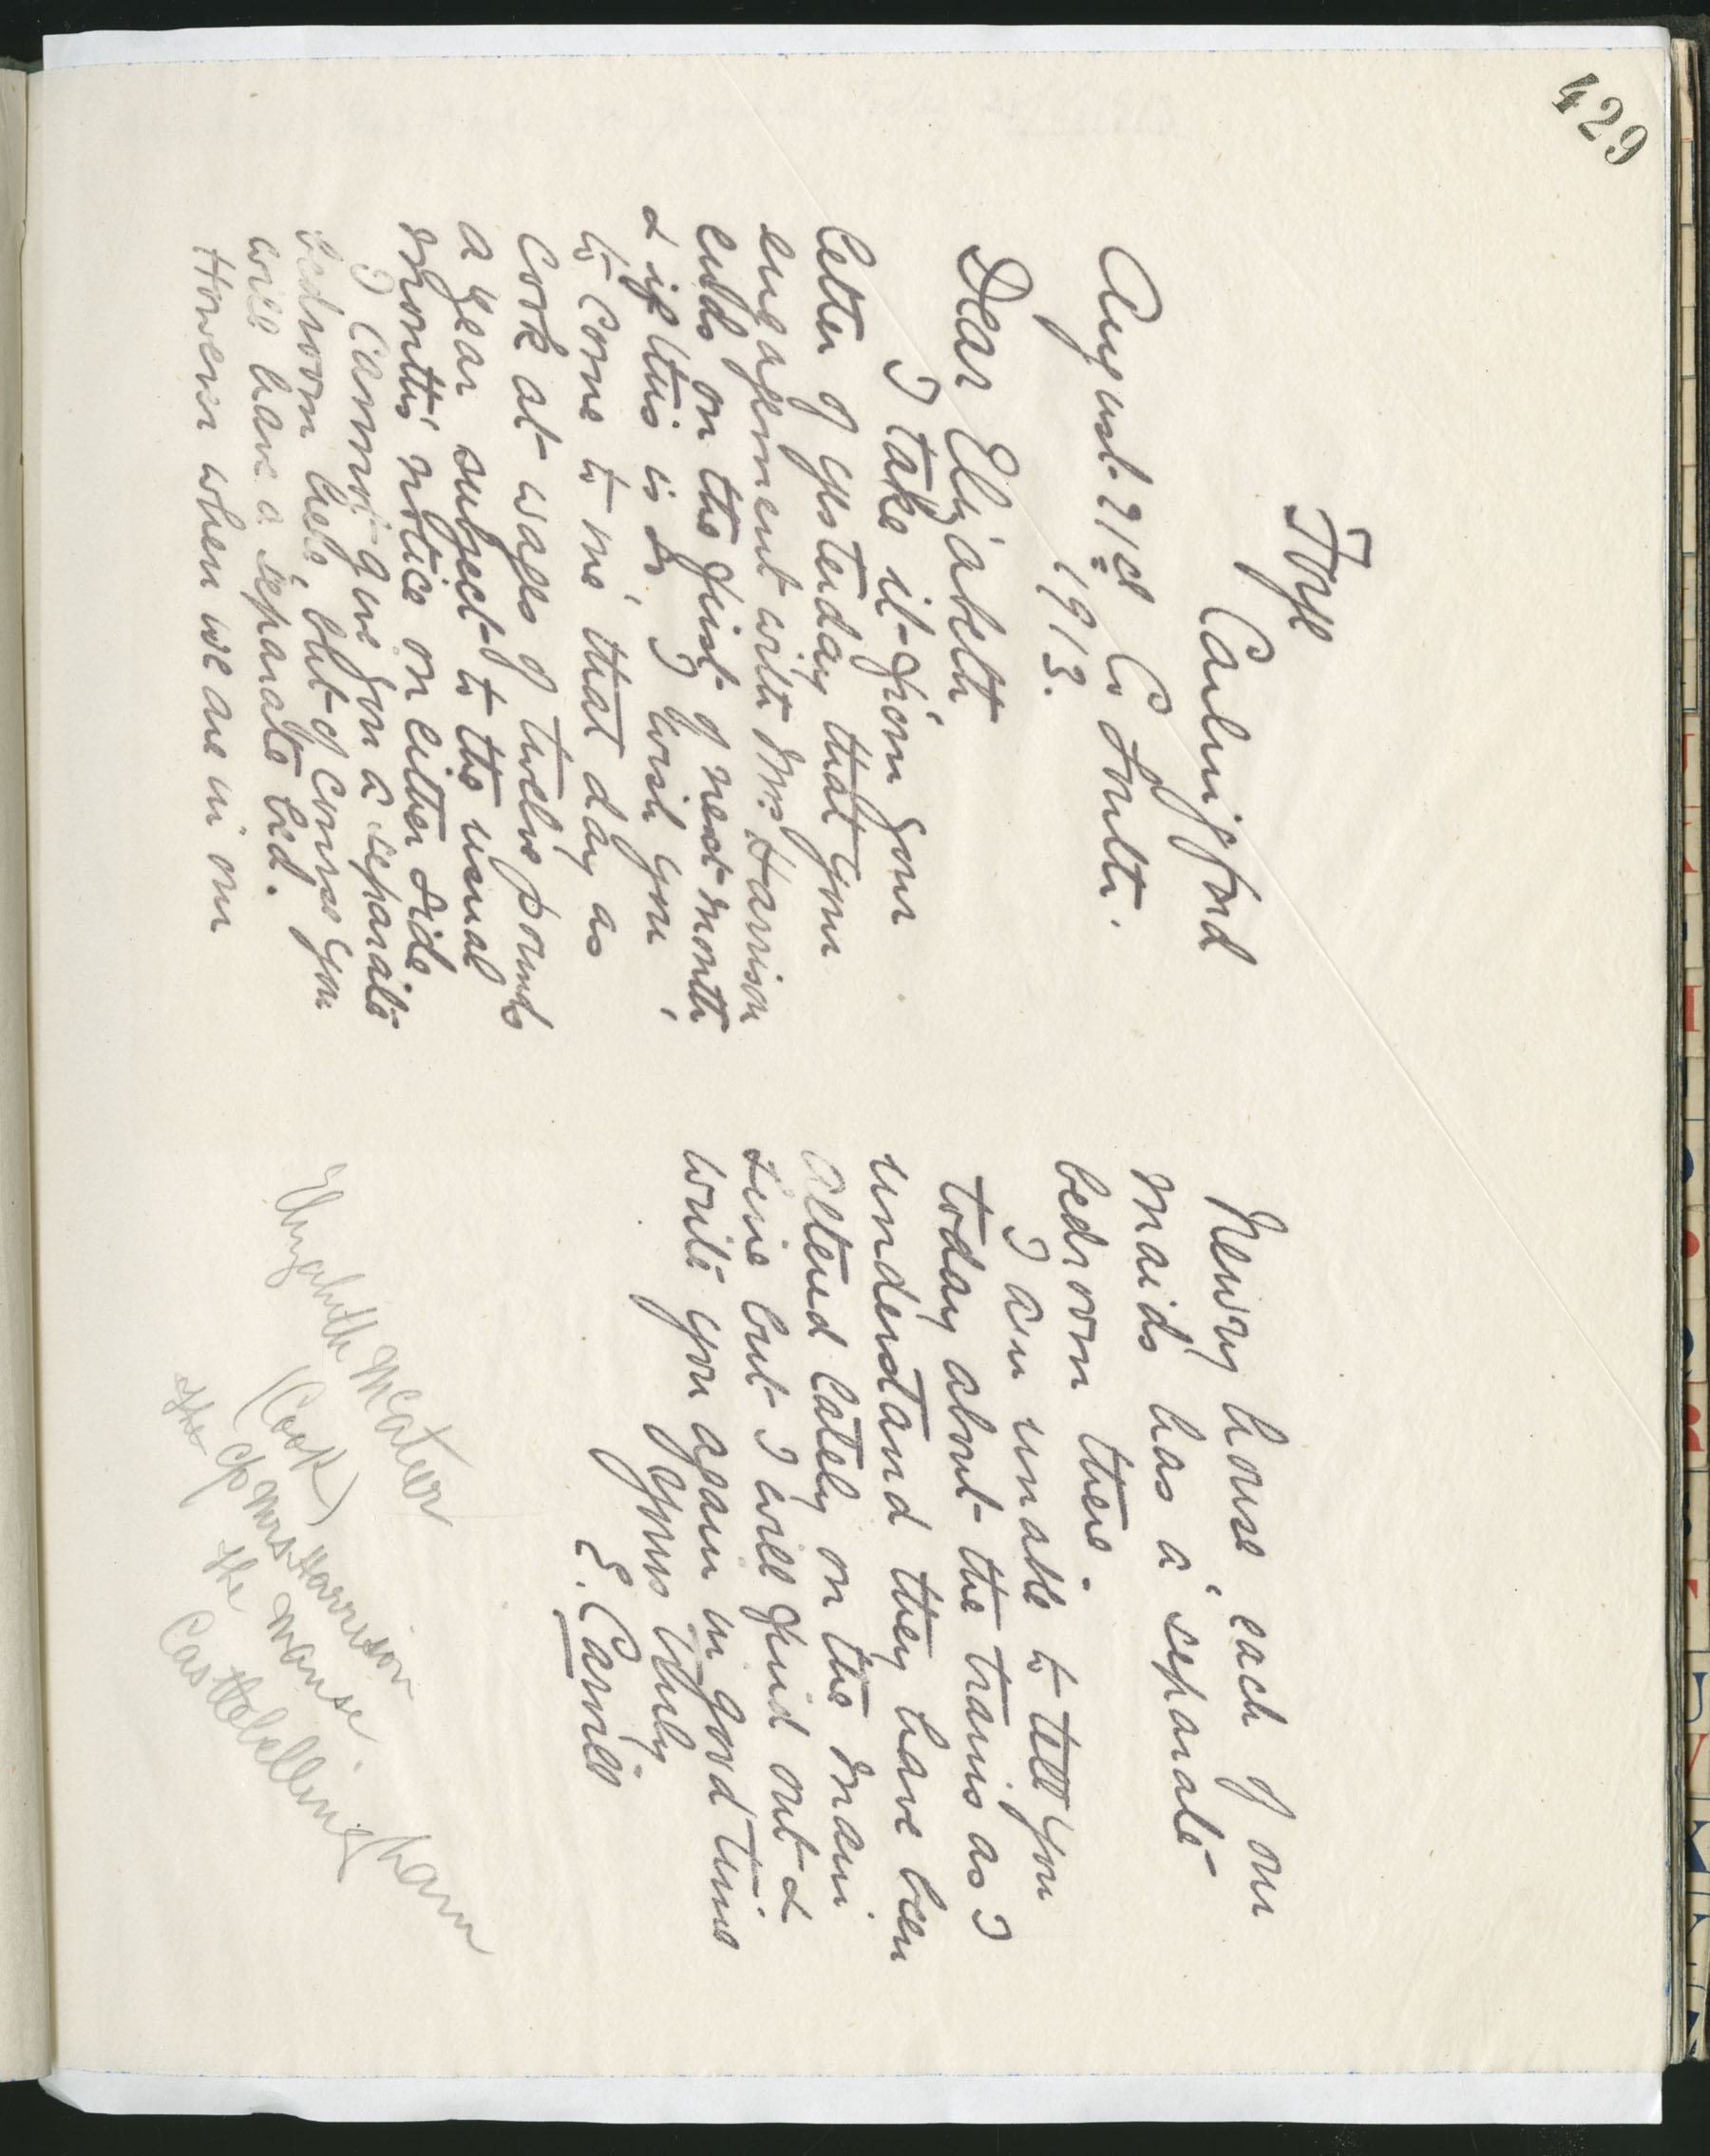 429
Foye
Carlingford
August 21st Co Louth.
1913.
Dear Elizabeth
I take it from your
letter of yesterday that your
engagement with Mrs Harrison
ends on the first of next month
& if this is so I wish you
to come to me that day as
Cook at wages of twelve pounds
a year subject to the usual
month's notice on either side
I cannot give you a separate
bedroom here, but of course you
will have a separate bed.
However when we are in our
Newry house each of our
maids has a separate
bedroom there.
I am unable to tell you
today about the trains as I
understand they have been
altered lately on the main
line but I will find out &
write you again in good time
Yours truly
E. Carvill
Elizabeth McAteer
(Cook)
c/o Mrs Harrison
The The Manse.
Castlebellingham